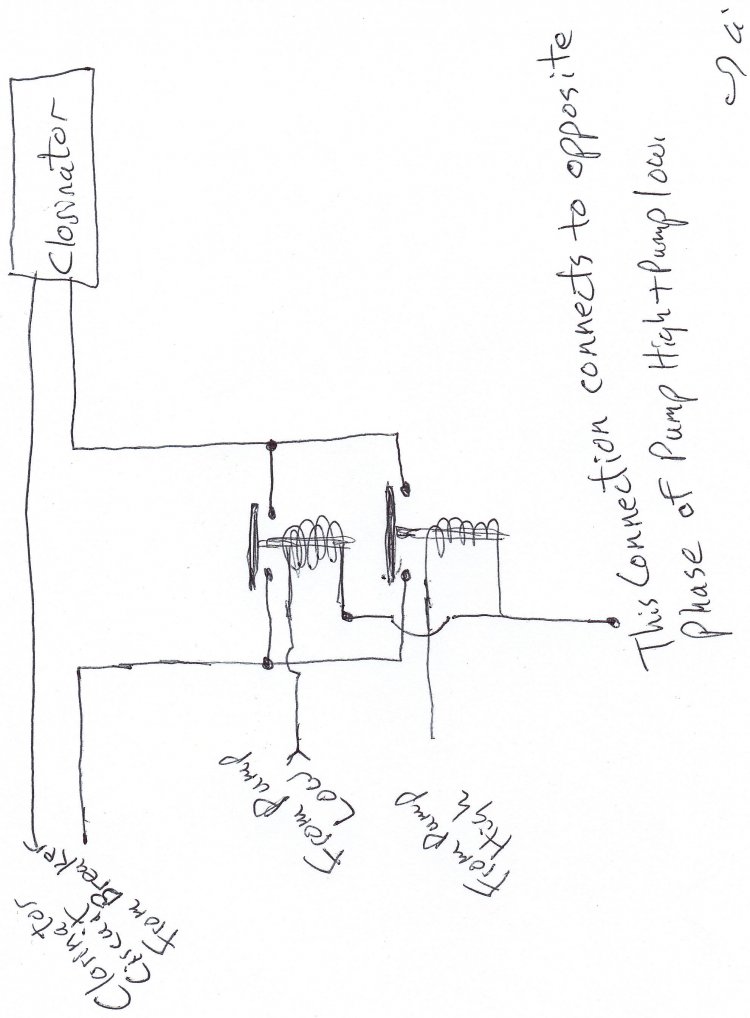 Clorinator
This Connection connects to opposite
phase of Pump High + Pump low.
From Pump
Low
From Pump
High
Clorinator
Circuit
From Breaker